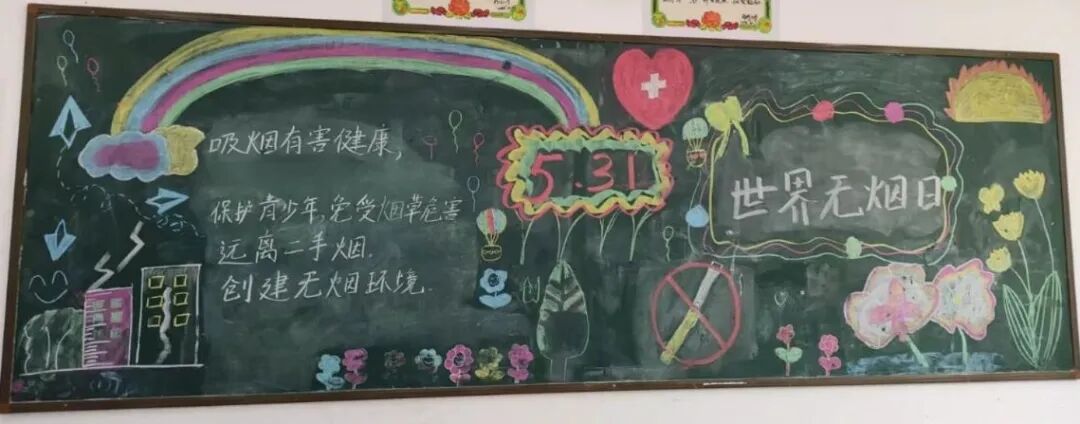 吸烟有害健康,
保护青少年,免受烟草危害
远离二手烟.
创建无烟环境.
5.31
世界无烟日
创